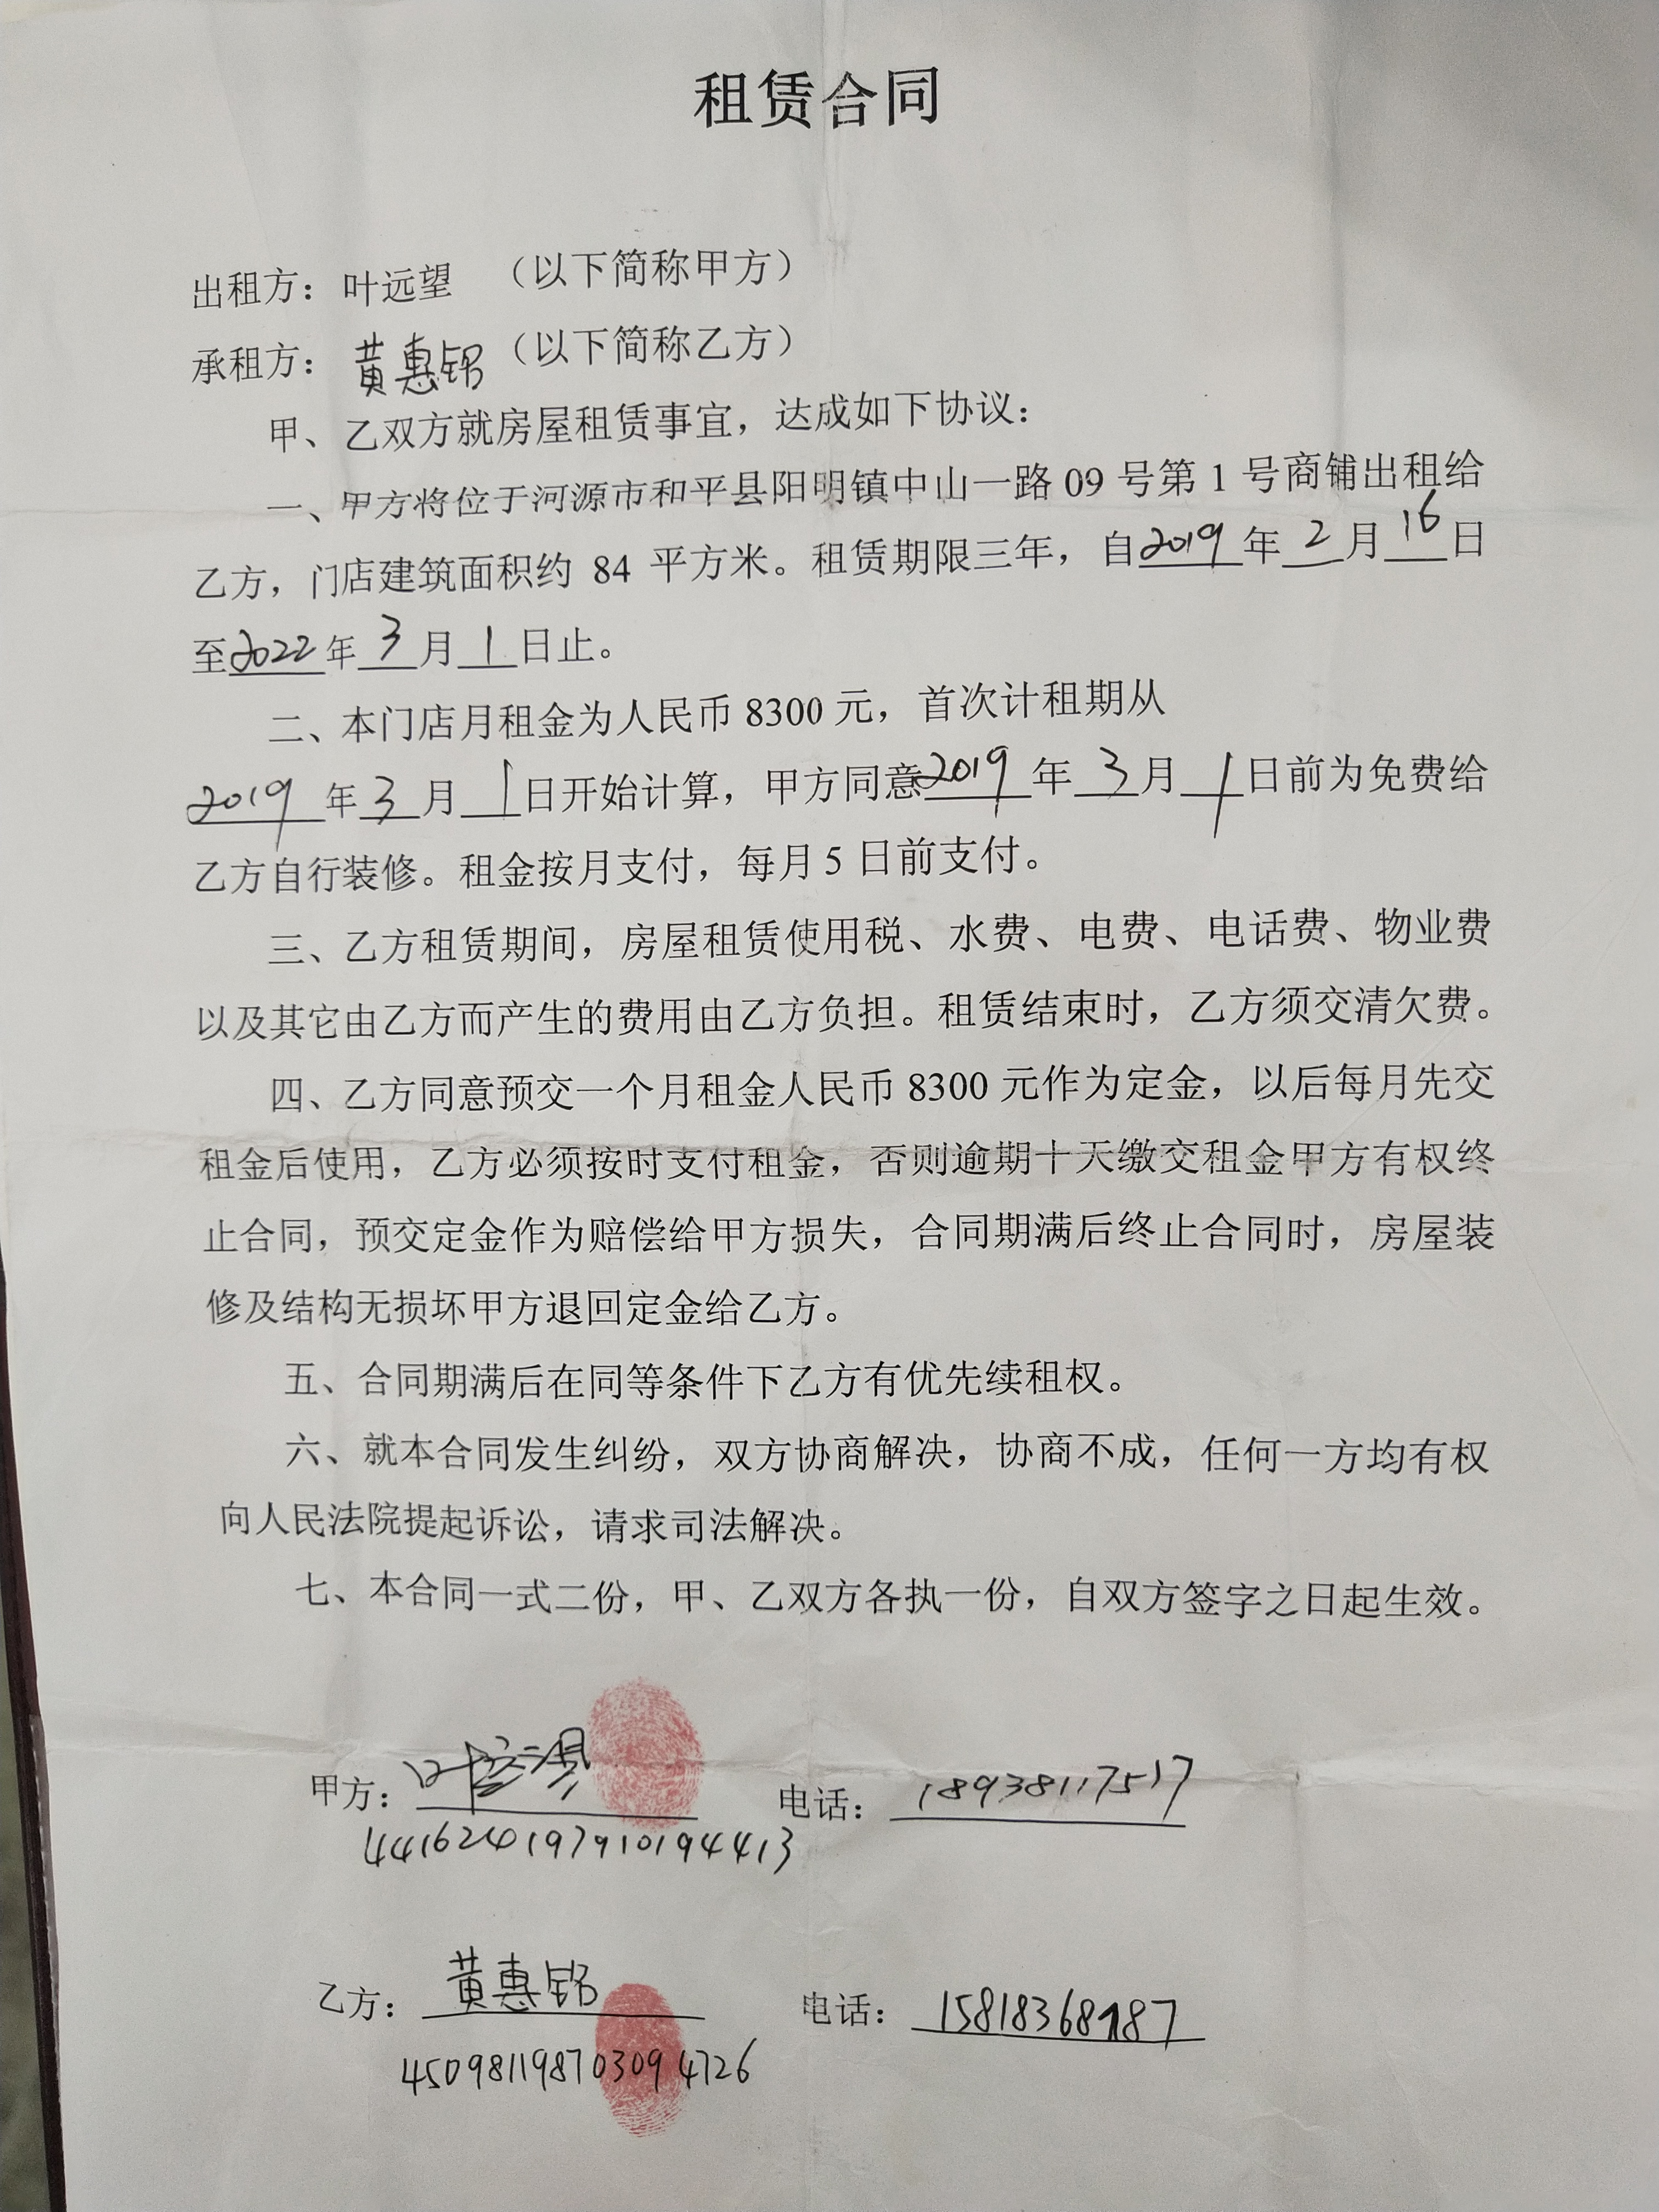 租赁合同
出租方：叶远望　（以下简称甲方）
承租方：黄惠　（以下简称乙方）
甲、乙双方就房屋租赁事宜，达成如下协议：
一、甲方将位于河源市和平县阳明镇中山一路 09 号第 1 号商铺出租给
乙方，门店建筑面积约 84 平方米。租赁期限三年，自2019年2月16日
至2022年3月1日止。
二、本门店月租金为人民币 8300 元，首次计租期从
2019年3月1日开始计算，甲方同意2019年3月1日前为免费给
乙方自行装修。租金按月支付，每月 5 日前支付。
三、乙方租赁期间，房屋租赁使用税、水费、电费、电话费、物业费
以及其它由乙方而产生的费用由乙方负担。租赁结束时，乙方须交清欠费。
四、乙方同意预交一个月租金人民币 8300 元作为定金，以后每月先交
租金后使用，乙方必须按时支付租金，否则逾期十天缴交租金甲方有权终
止合同，预交定金作为赔偿给甲方损失，合同期满后终止合同时，房屋装
修及结构无损坏甲方退回定金给乙方。
五、合同期满后在同等条件下乙方有优先续租权。
六、就本合同发生纠纷，双方协商解决，协商不成，任何一方均有权
向人民法院提起诉讼，请求司法解决。
七、本合同一式二份，甲、乙双方各执一份，自双方签字之日起生效。
甲方：叶　电话：18938117517
441624197910194413
乙方：黄惠　电话：15818368187
450981198703094726